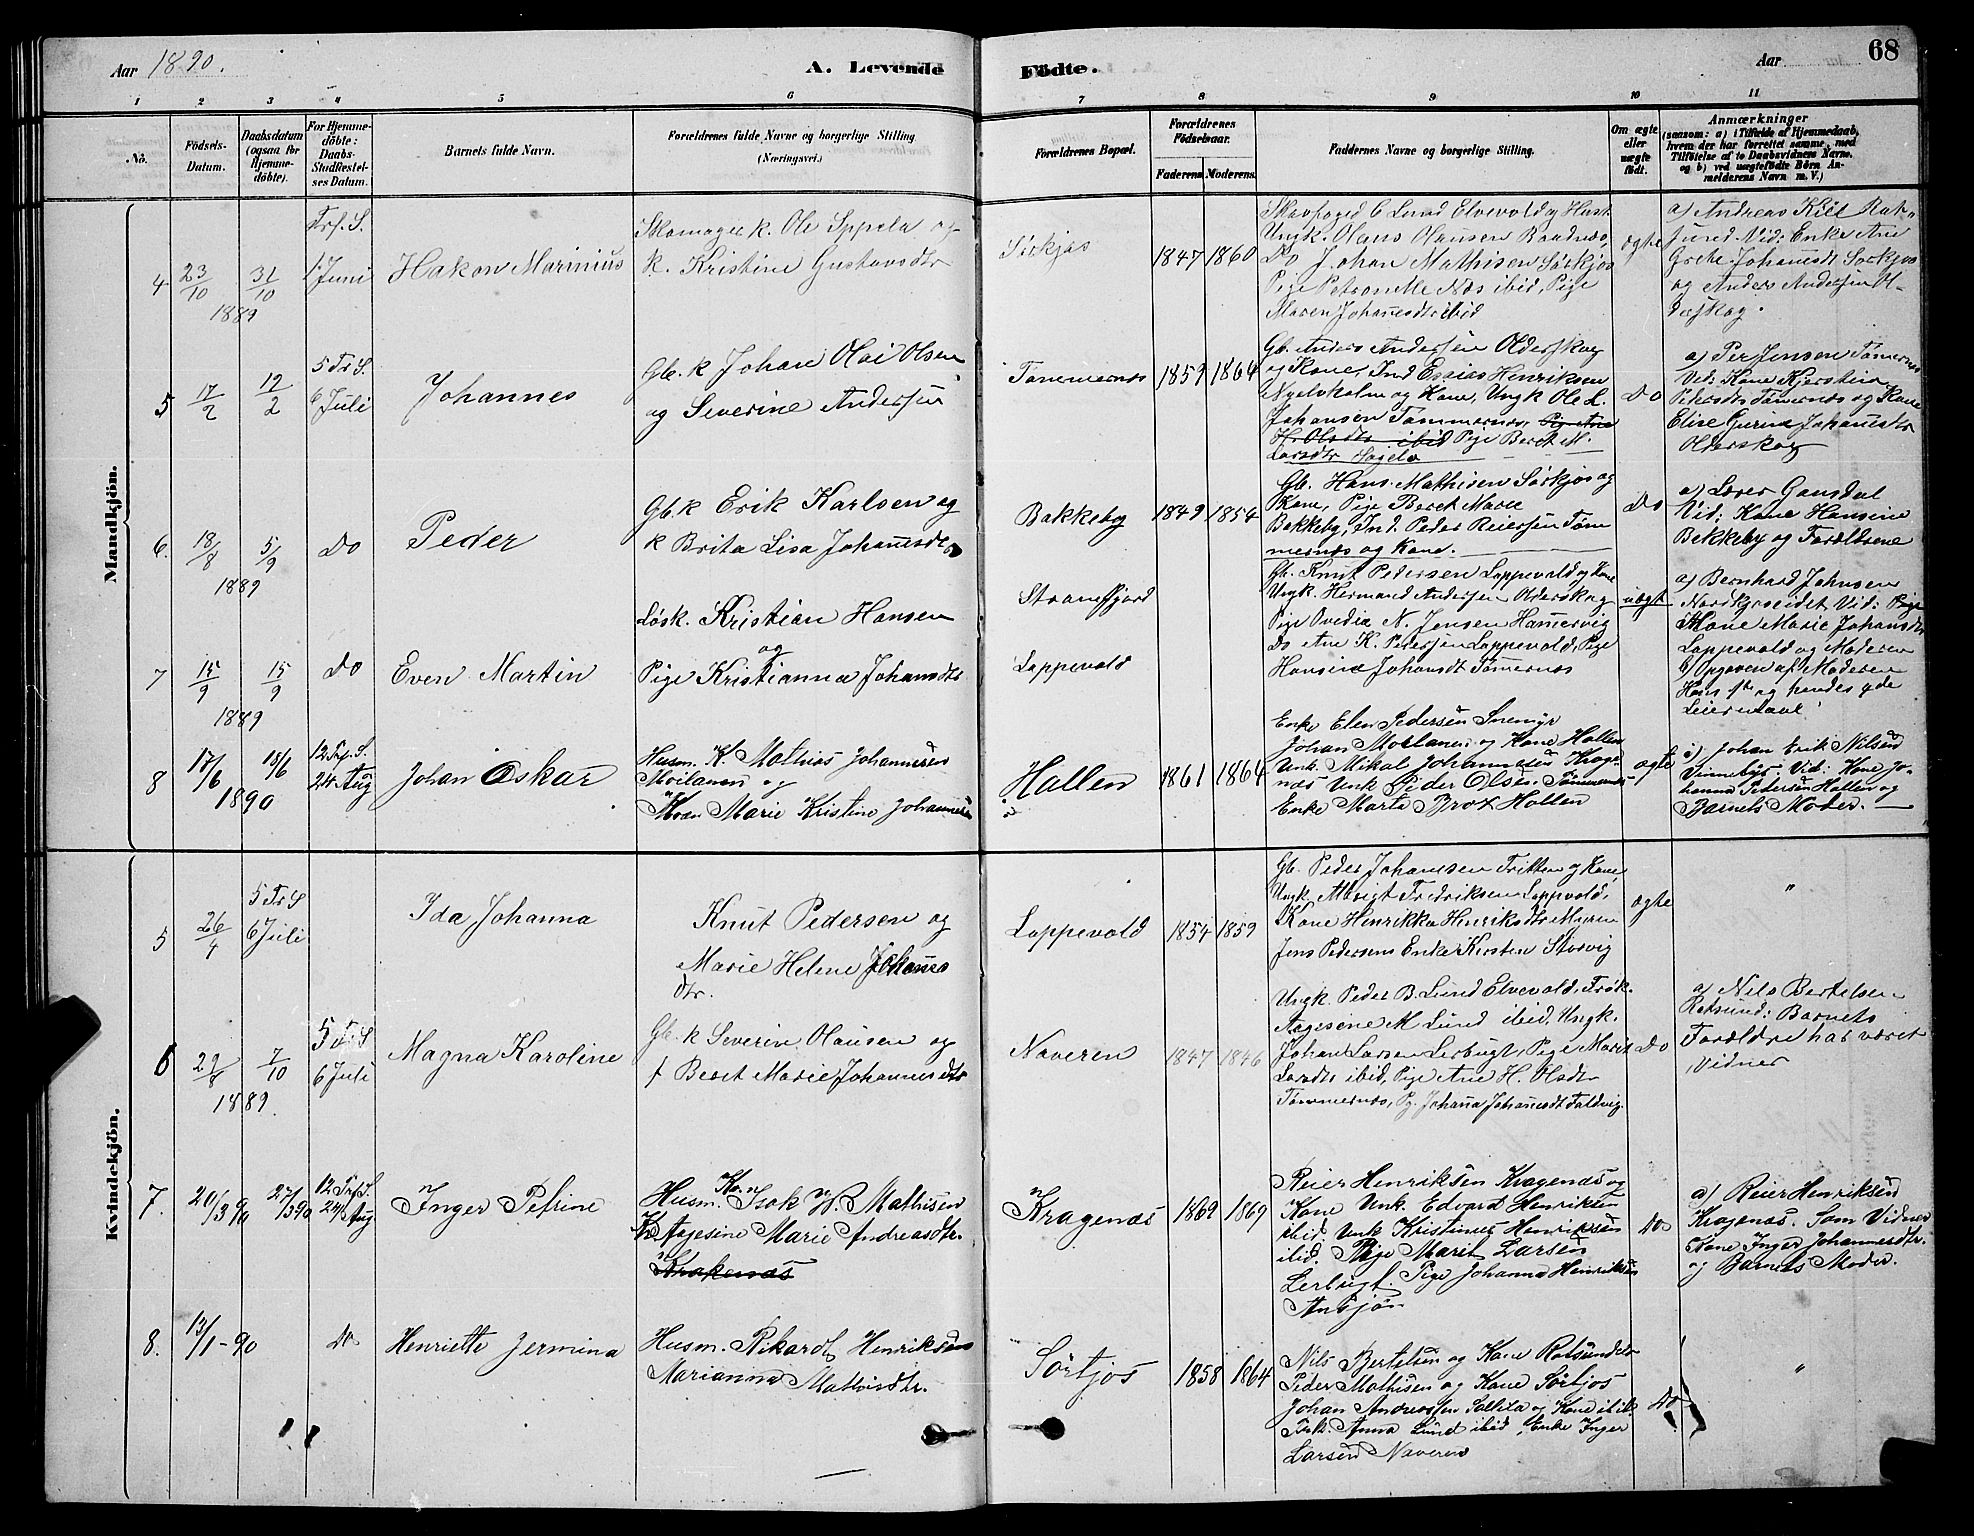 Aar 1890.
A. Levende Födte.
Aar
68
1 2 3 4 5 6 7 8 9 10 11
No.
Födsels-Datum.
Daabsdatum (ogsaa for Hjemme-döbte).
For Hjemme-döbte: Daabs-Stadfæstel-ses Datum.
Barnets fulde Navn.
Forældrenes fulde Navne og borgerlige Stilling.
(Næringsvei.)
Forældrenes Bopæl.
Forældrenes Födselsaar.
Faderens Moderens
Faddernes Navne og borgerlige Stilling.
Om ægte eller uægte födt.
Anmærkninger
(saasom: a) i Tilfælde af Hjemmedaab, hvem der har forrettet samme, med Tilföielse af to Daabsvidners Navne, og b) ved uægtefödte Börn An-melderens Navn m. V.)
Mandkjön.
4
23/10
31/10
1889
Trf. S.
1 Juni
Hakon Marinius
Skomager k. Ole Sppela og
k. Kristine Gustavsdtr
Sörkjos
1847 1860
Skovfoged C Lund Elvevold og Hust.
Ungk. Olaus Olausen Baadnæs,
Do Johan Mathisen Sörkjos
Pige Petronelle Næs ibid, Pige
Maren Johansdtr ibid
ægte
a) Andreas Kiil Rot-
sund. Vid: Enke Ane
Grete Johansdt Sorkjos
og Anders Andersen Ol-
derskog.
5
17/2
12/2
5 Tr S.
6 Juli
Johannes
Gb. k Johan Olai Olsen
og Severine Andersen
Tömmernæs
1859 1864
Gb. Anders Andersen Olderskog
og Kone, Ind. Esaias Henriksen
Nyelvholm og Kone, Ungk Ole L.
Johansen Tömmernæs, Pige Ane
H. Olsdtr ibid Pige Beret M.
Larsdtr Sagelv
Do
a) Per Jensen Tömernæs
Vid: Kone Kjerstein
Pedersdtr Tömernæs og Kone
Elise Gurine Johansdtr
Olderskog
6.
18/8
5/9
1889
Do
Peder
Gb k Erik Karlsen og
k Brita Lisa Johansdtr
Bakkeby
1849 1854
Gb. Hans Mathisen Sörkjos og
Kone, Pige Beret Marie
Bakkeby, Ind. Peder Reiersen Töm
mernæs og Kone.
Do
a) Lærer Gausdal
Vid: Kone Hansine
Bekkeby og Forældrene
7
15/9
15/9
1889
Do
Even Martin
Lösk. Kristian Hansen
og
Pige Kristianna Johansdtr
Straumfjord
Loppevold
Gb. Knut Pedersen Loppevold og Kone
Ungk. Hermand Andersen Olderskog
Pige Ovedia N. Jensen Hamervig
Do Ane K. Petersen Loppevold, Pige
Hansine Johansdt Tömernæs
uægt
a) Bernhard Johnsen
Nordkjoseidet Vid: Pige
Kone Marie Johansdtr
Loppevold og Moderen
b) Opgaven af Moderen
Hans 1ste og hendes 4de
Leiermaal
8
17/6
18/6
1890
12 Trf. S.
24 Aug
Johan Oskar
Husm. K. Mathias Johannesen
Moilanen og
Kvan Marie Kristine Johannesen
Hallen
1861 1864
Enke Elen Pedersen Snemyr
Johan Moilanen og Kone Hallen
Unk Mikal Johannesen Krag-
næs Unk Peder Olsen Tömmernæs
Enke Marta Brox Hallen
ægte
a) Johan Erik Nilsen
Vinnelys; Vid: Kone Jo-
hanna Pedersen Hallen og
Barnets Moder.
Kvindekjön.
5
26/4
5 Tr S
6 Juli
Ida Johanna
Knut Pedersen og
Marie Helene Johannes
dtr.
Loppevold
1854 1859
Gb. Peder Johansen Fritten og Kone,
Ungk Albrigt Fredriksen Loppvold,
Kone Henrikka Henriksdtr Myren
Jens Pedersens Enke Kirsten Storvig
ægte
"
6
29/8
7/10
1889.
5 Tr S
6 Juli
Magna Karoline
Gb. k Severin Olausen og
f Beret Marie Johannesdtr
Naveren
1847 1846
Ungk. Peder B. Lund Elvevold, Frök.
Aagesine M Lund ibid, Ungk.
Johan Larsen Lerbugt, Pige Marit
Larsdtr ibid, Pige Ane H. Olsdtr
Tömmernæs, Pg. Johana Johanesdt Taldvig.
Do
a) Nils Bertelsen
Rotsund: Barnets
Forældre har været
Vidner
7.
20/3 90
27/3 90
12 Trf. S.
24 Aug
Inger Petrine
Kv.
Husm. Isak B. Mathisen
K Aagesine Marie Andreasdtr.
Krakenæs
Kragenæs
1869 1869
Reier Henriksen Kragenæs og
Kone Unk. Edvard Henriksen
ibid. Unk Kristines Henriksen
ibid. Pige Marit Larsen
Lerbugt. Pige Johanna Henriksen
Ansjön
Do
a) Reier Henriksen
Kragenæs. Som Vidner
Kone Inger Johannesdtr.
og Barnets Moder.
8.
13/1-90
Do
Henriette Jermina
Husm. Rikardt Henriksen
Marianna Mathisdtr.
Sörkjos
1858 1864
Nils Bertelsen og Kone Rotsundelv
Peder Mathisen og Kone Sörkjos
Johan Andreassen Sallila og Kone ibid.
Frk. Anna Lund ibid, Enke Inger
Larsen Naveren
Do
"